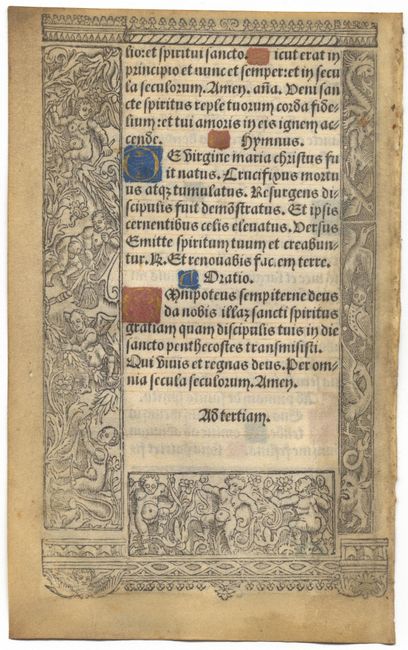 lio:et spiritui sancto. Sicut erat in
principio et nunc et semper:et in secu
la seculorum. Amen. aña. Veni san
cte spiritus reple tuorum corda fide-
lium:et tui amoris in eis ignem ac
cende. Hymnus.
DE virgine maria christus fu
it natus. Crucifixus mortu
us atqʒ tumulatus. Resurgens di-
scipulis fuit demõstratus. Et ipsis
cernentibus celis eleuatus. Versus
Emitte spiritum tuum et creabun-
tur. R. Et renouabis faciem terre.
Oratio.
OMnipotens sempiterne deus
da nobis illaʒ sancti spiritus
gratiam quam discipulis tuis in die
sancto penthecostes transmisisti.
Qui viuis et regnas deus. Per om-
nia secula seculorum. Amen.
Ad tertiam.